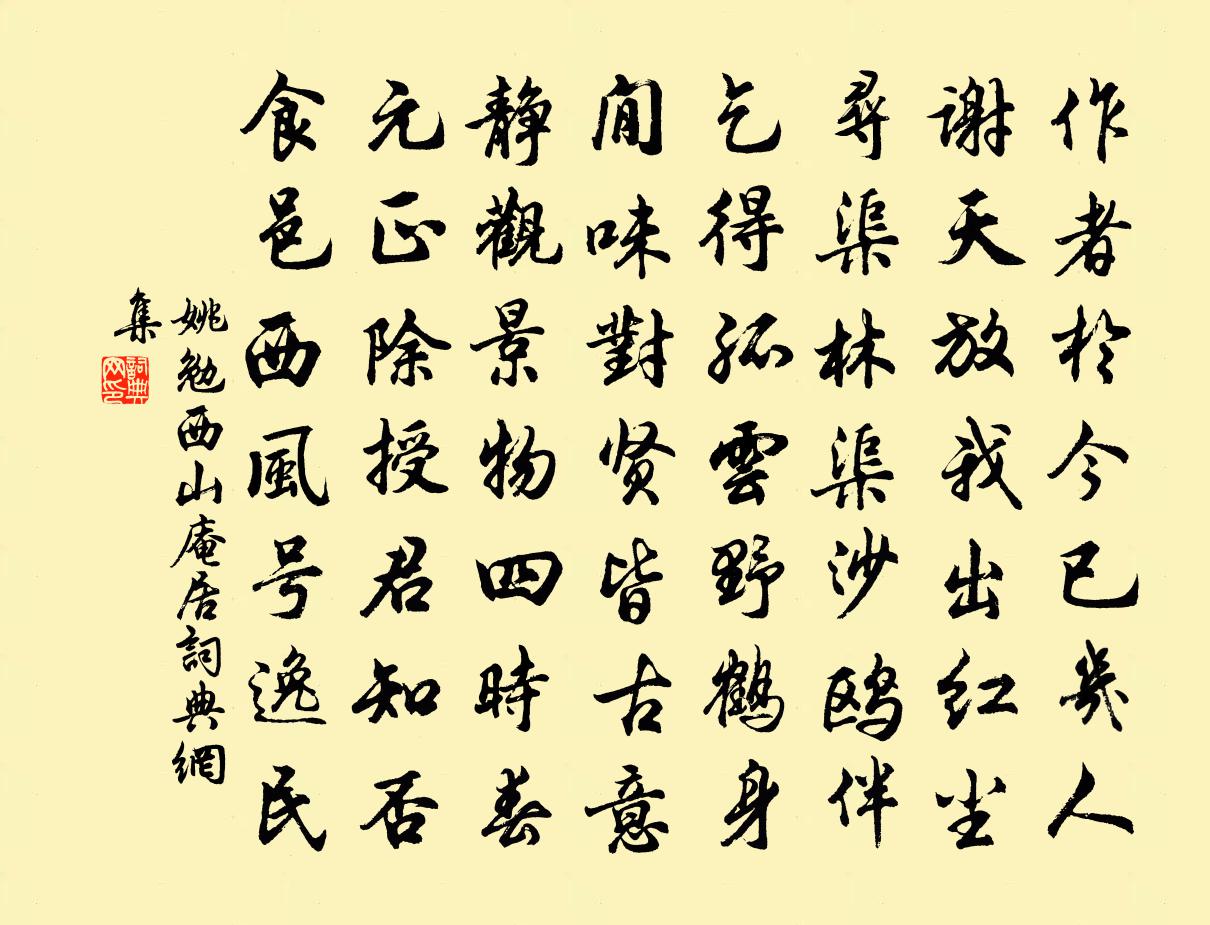 作者於今已幾人
謝天放我出红尘
尋渠林渠沙鸥伴
乞得孤雲野鹤身
閒味對贤皆古意
静觀景物四時春
元正除授君知否
食邑西風号逸民
姚勉西山庵居詞典網
集
詞典网印